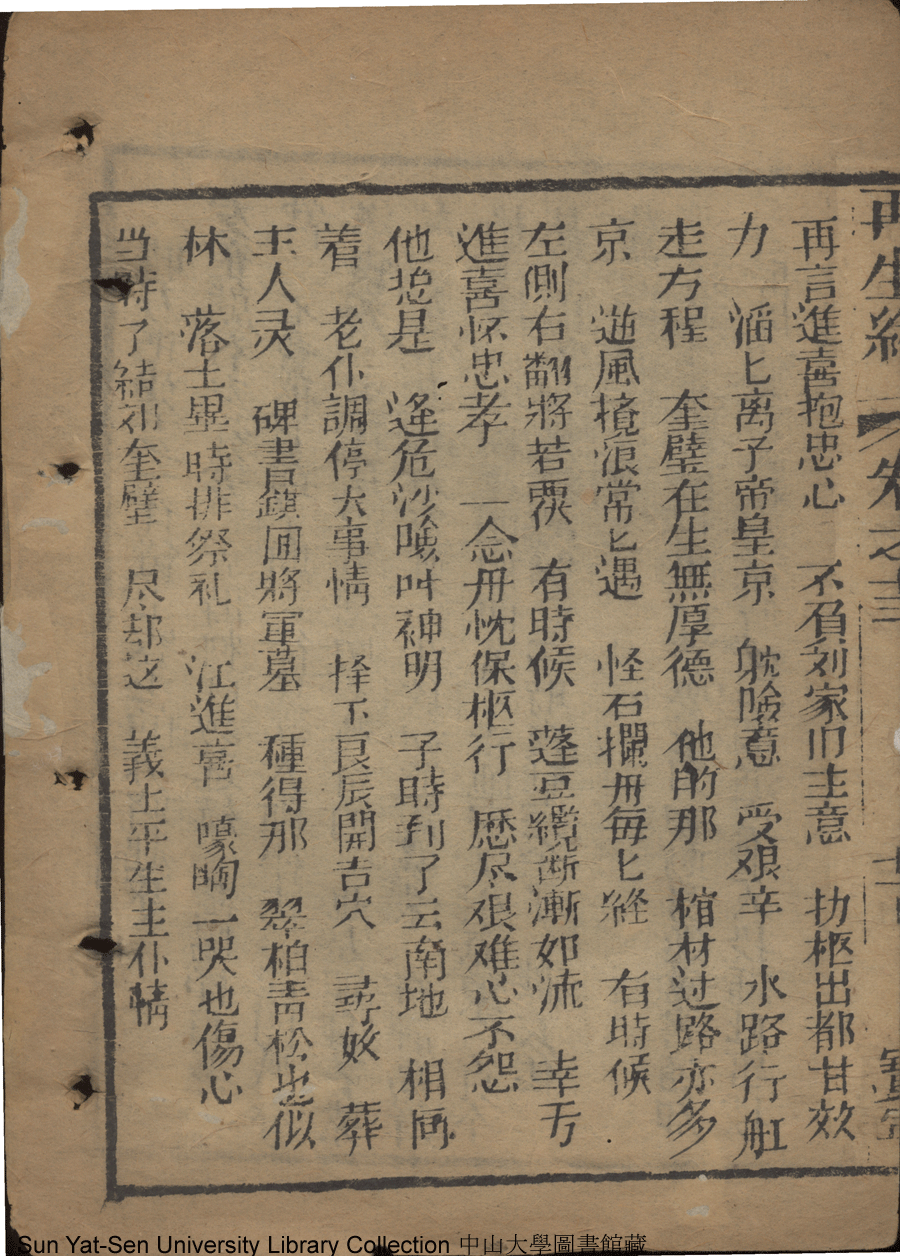 再生緣 卷之十三
再言進喜抱忠心 不負刘家旧主意 扐柩出都甘效
力 滔匕离子帝皇京 躭險意 受艰辛 水路行舡
走方程 奎璧在生無厚德 他的那 棺材过路亦多
京 遊風擋浪常匕遇 怪石攔舟每匕經 有時候
左側右翻將若覆 有時候 蓬豆纜断漸如流 幸亏
進喜怀忠孝 一念丹忱保柩行 歷尽艰难心不怨
他总是 逢危沙險叫神明 子時到了云南地 相向
着 老仆調停大事情 择下良辰開吉穴 尋妏 葬
主人灵 碑書鎮囬將軍墓 種得那 翠柏青松也似
林 落土畢時排祭礼 江進喜 嚎啕一哭也傷心
当時了結刘奎璧 尽却这 義士平生主仆情
Sun Yat-Sen University Library Collection 中山大學圖書館藏